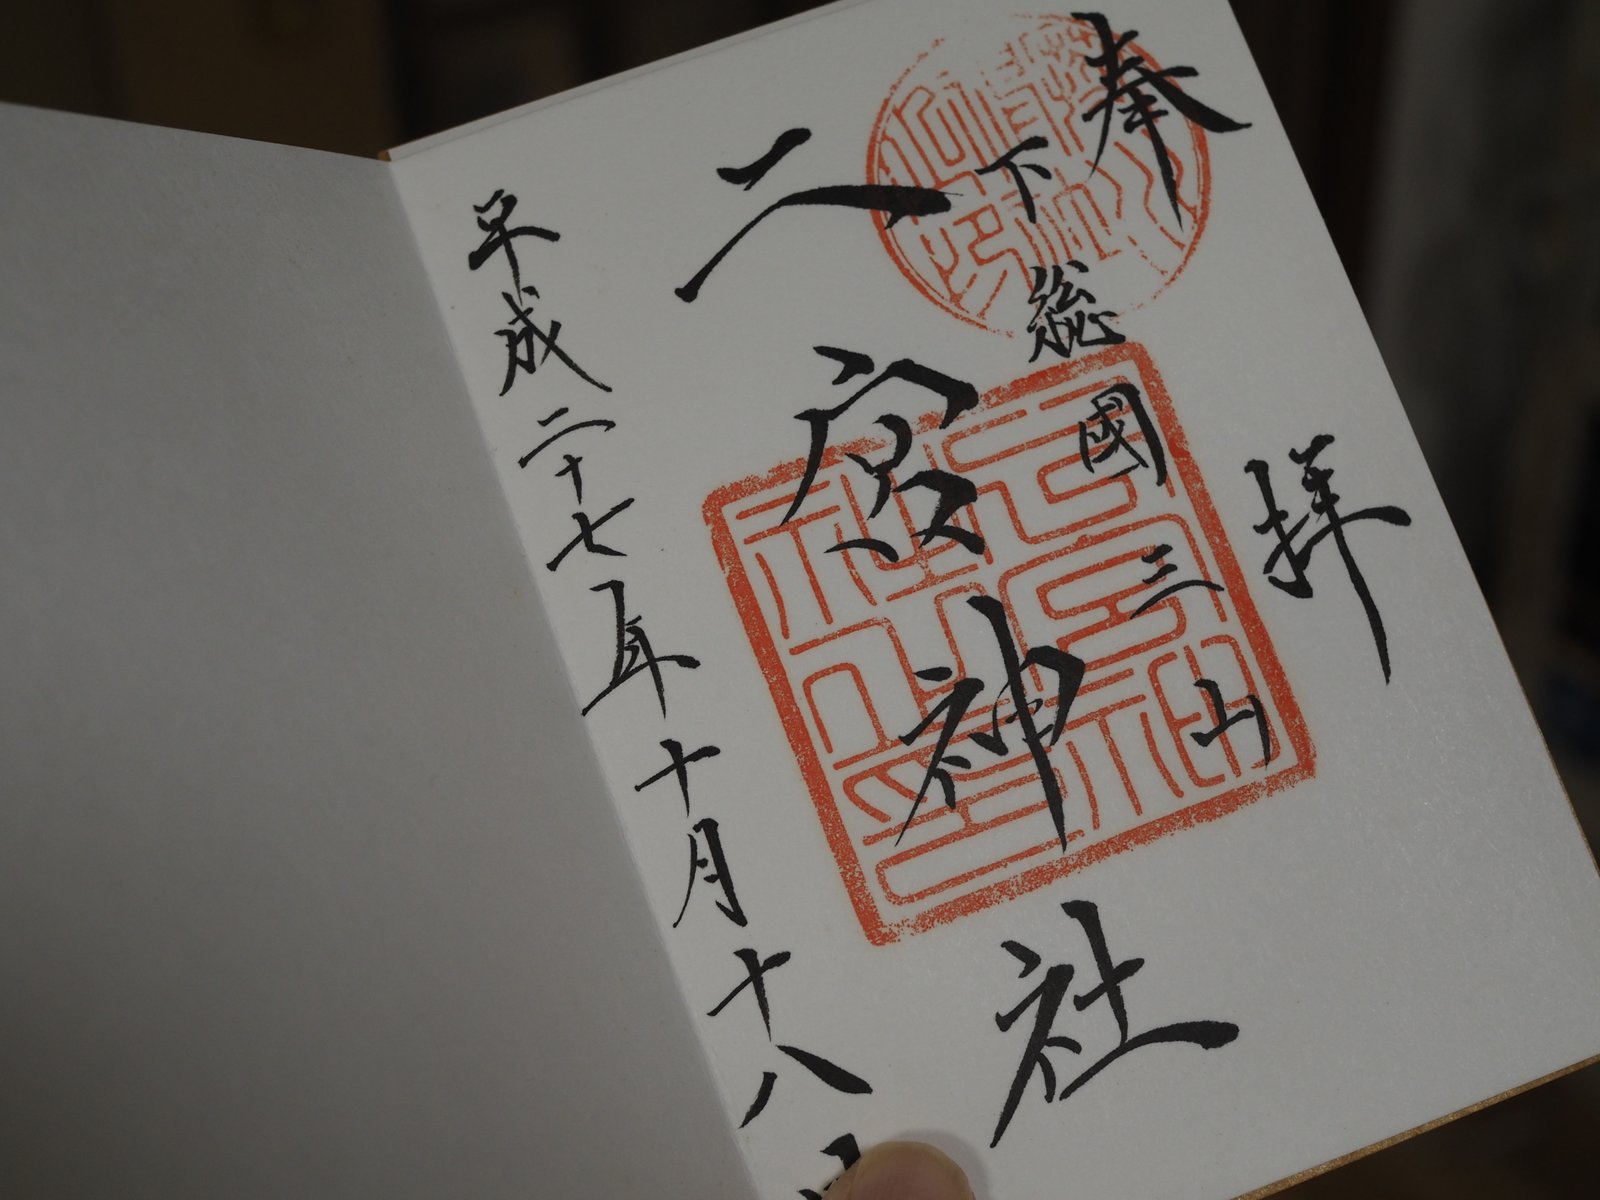 奉拝
下総國三山
二宮神社
平成二十七年十月十八日
二宮神社神璽